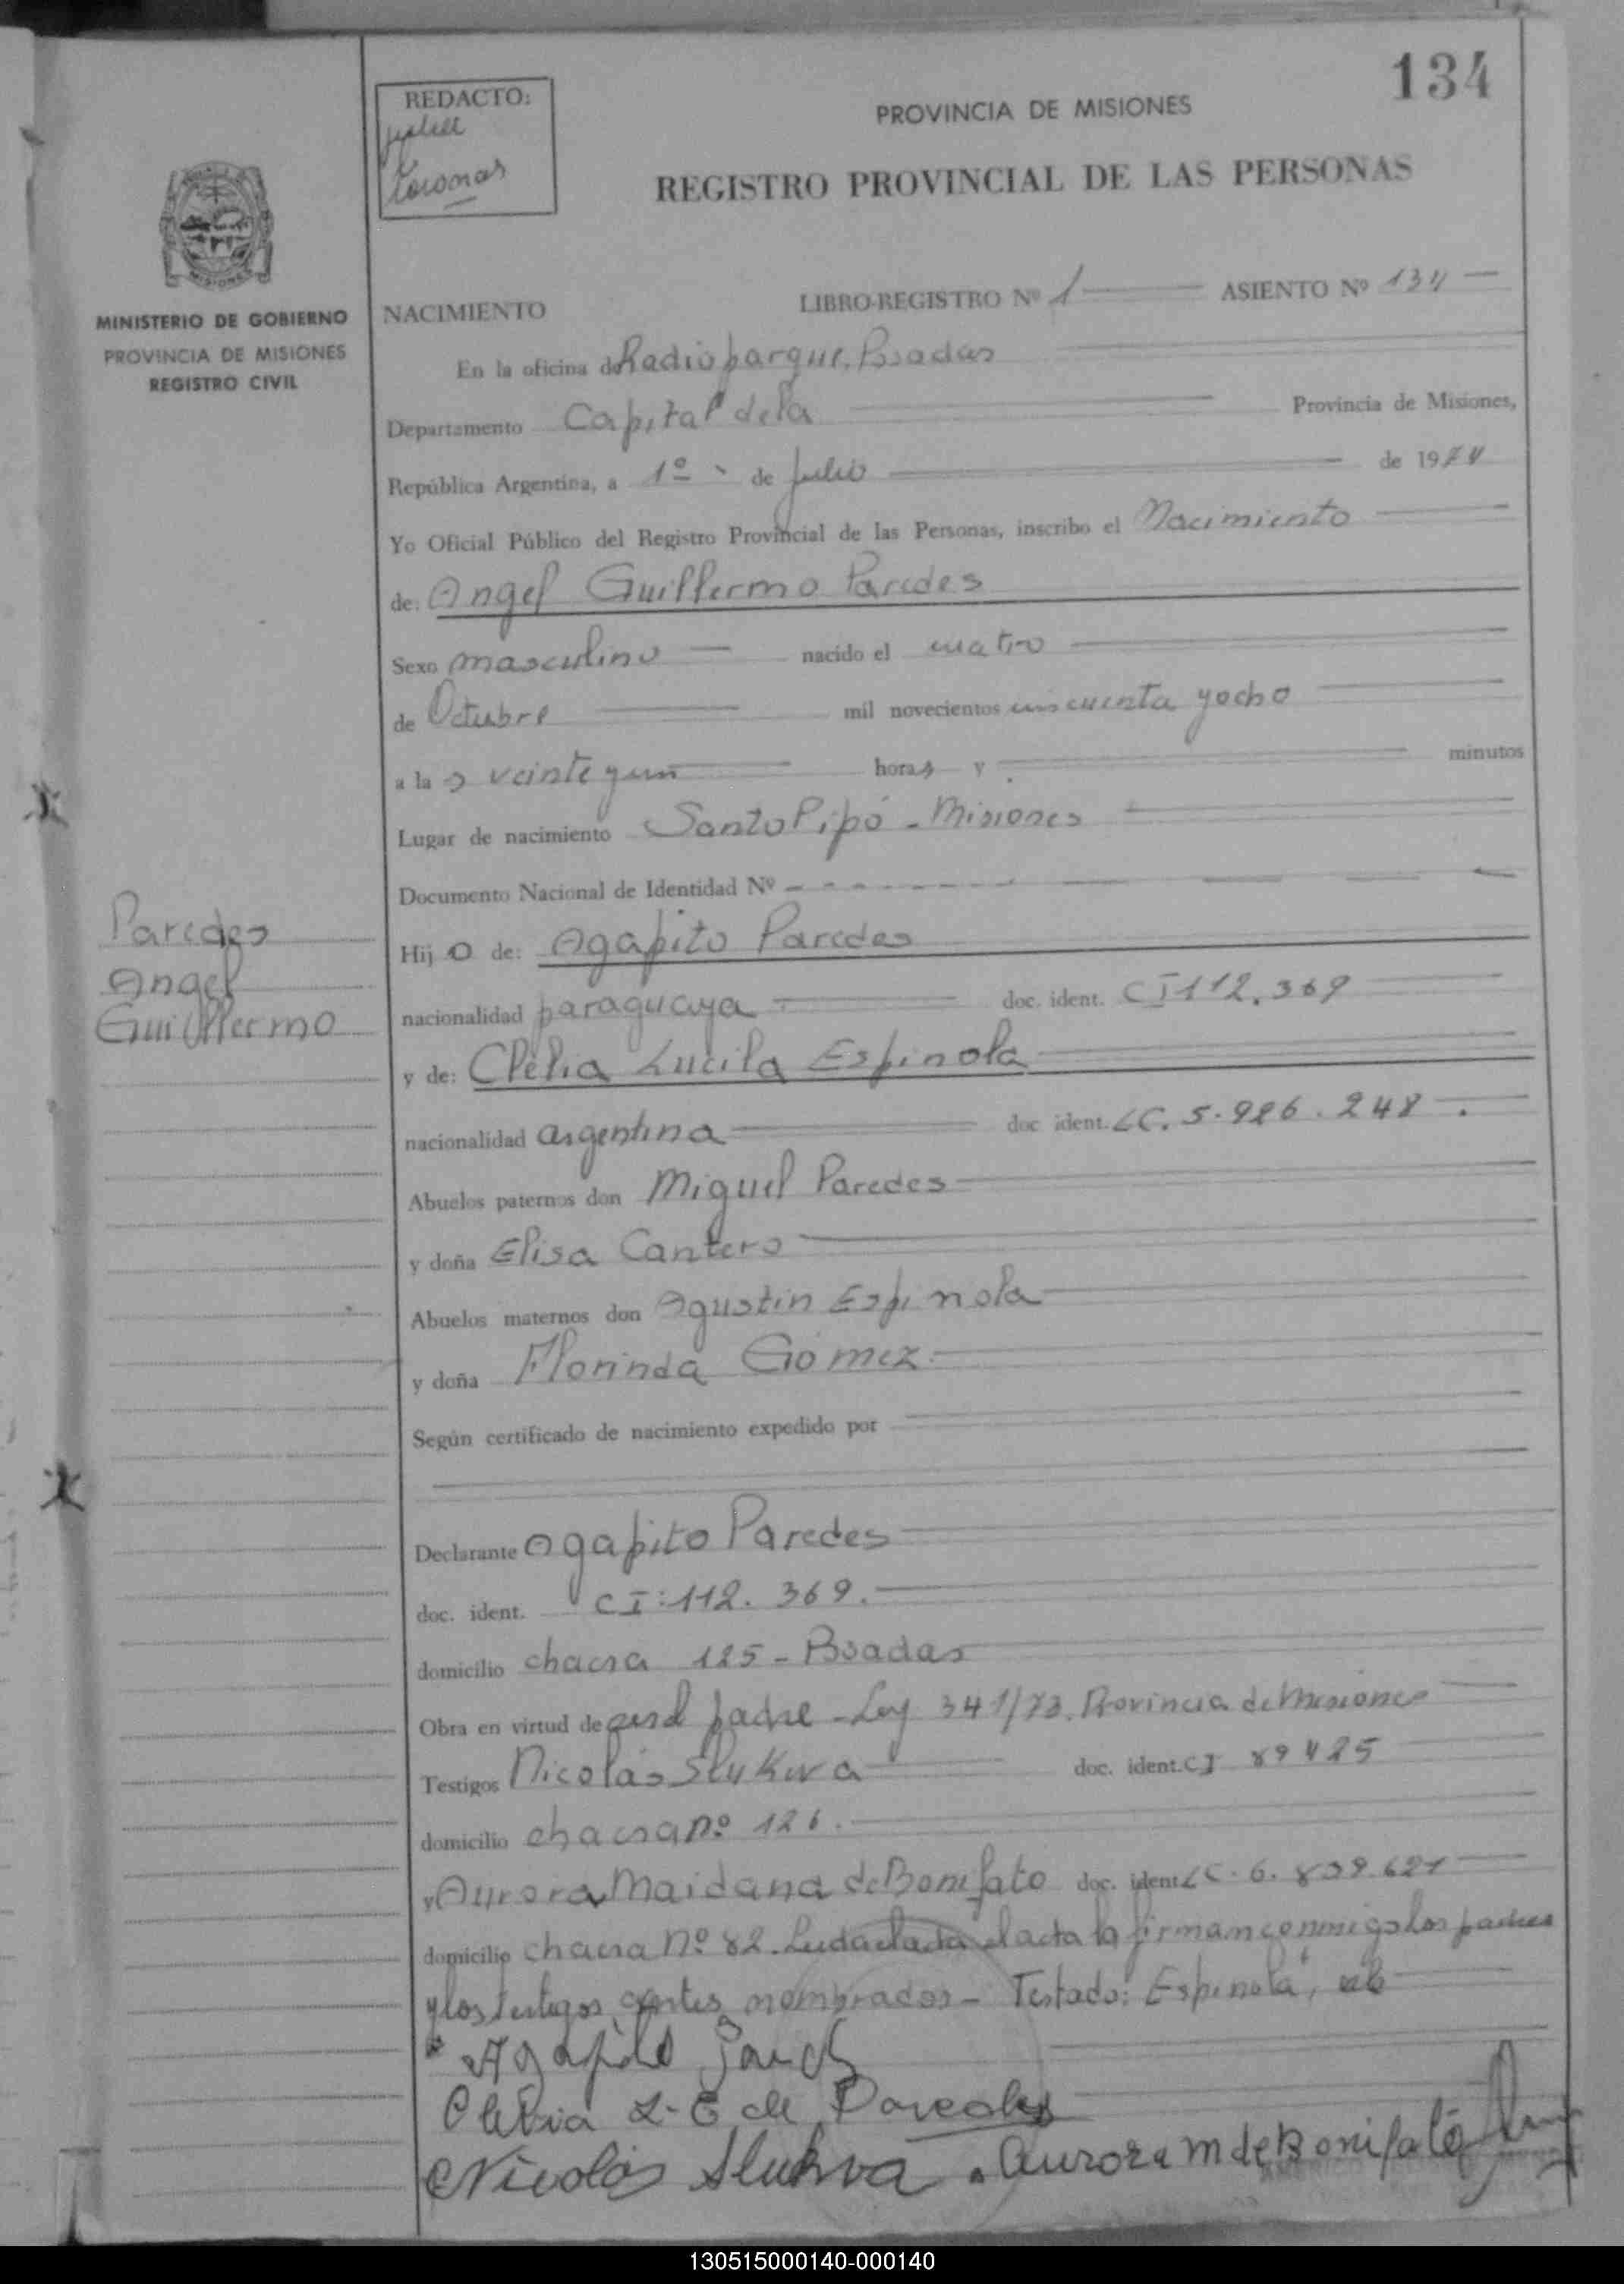 134
REDACTO:
Coronas
PROVINCIA DE MISIONES
REGISTRO PROVINCIAL DE LAS PERSONAS
MISIONES
MINISTERIO DE GOBIERNO
PROVINCIA DE MISIONES
REGISTRO CIVIL
NACIMIENTO LIBRO-REGISTRO Nº 1 ASIENTO Nº 134
En la oficina de Radioparque, Posadas
Departamento Capital de la Provincia de Misiones,
República Argentina, a 1º de Julio de 1974
Yo Oficial Público del Registro Provincial de las Personas, inscribo el Nacimiento
de: Angel Guillermo Paredes
Sexo masculino nacido el cuatro
de Octubre mil novecientos cincuenta y ocho
a las veinte y un horas y minutos
Lugar de nacimiento Santo Pipó - Misiones
Documento Nacional de Identidad Nº
Paredes
Angel
Guillermo
Hijo de: Agapito Paredes
nacionalidad paraguaya doc. ident. CI 112.369
y de: Clelia Lucila Espinola
nacionalidad argentina doc ident. LC. 5.926.248.
Abuelos paternos don Miguel Paredes
y doña Elisa Cantero
Abuelos maternos don Agustin Espinola
y doña Florinda Gómez.
Según certificado de nacimiento expedido por
Declarante Agapito Paredes
doc. ident. CI: 112.369.
domicilio chacra 125 - Posadas
Obra en virtud de ser el padre - Ley 341/73. Provincia de Misiones
Testigos Nicolás Slukwa doc. ident. CI 89425
domicilio chacra nº 126.
y Aurora Maidana de Bonifato doc. ident LC. 6.839.621
domicilio chacra Nº 82. Leida el acta la firman conmigo los padres
y los testigos antes nombrados - Testado: Espinola,
Agapito Paredes
Clelia L. E de Paredes
Nicolás Slukwa Aurora M de Bonifato
130515000140-000140